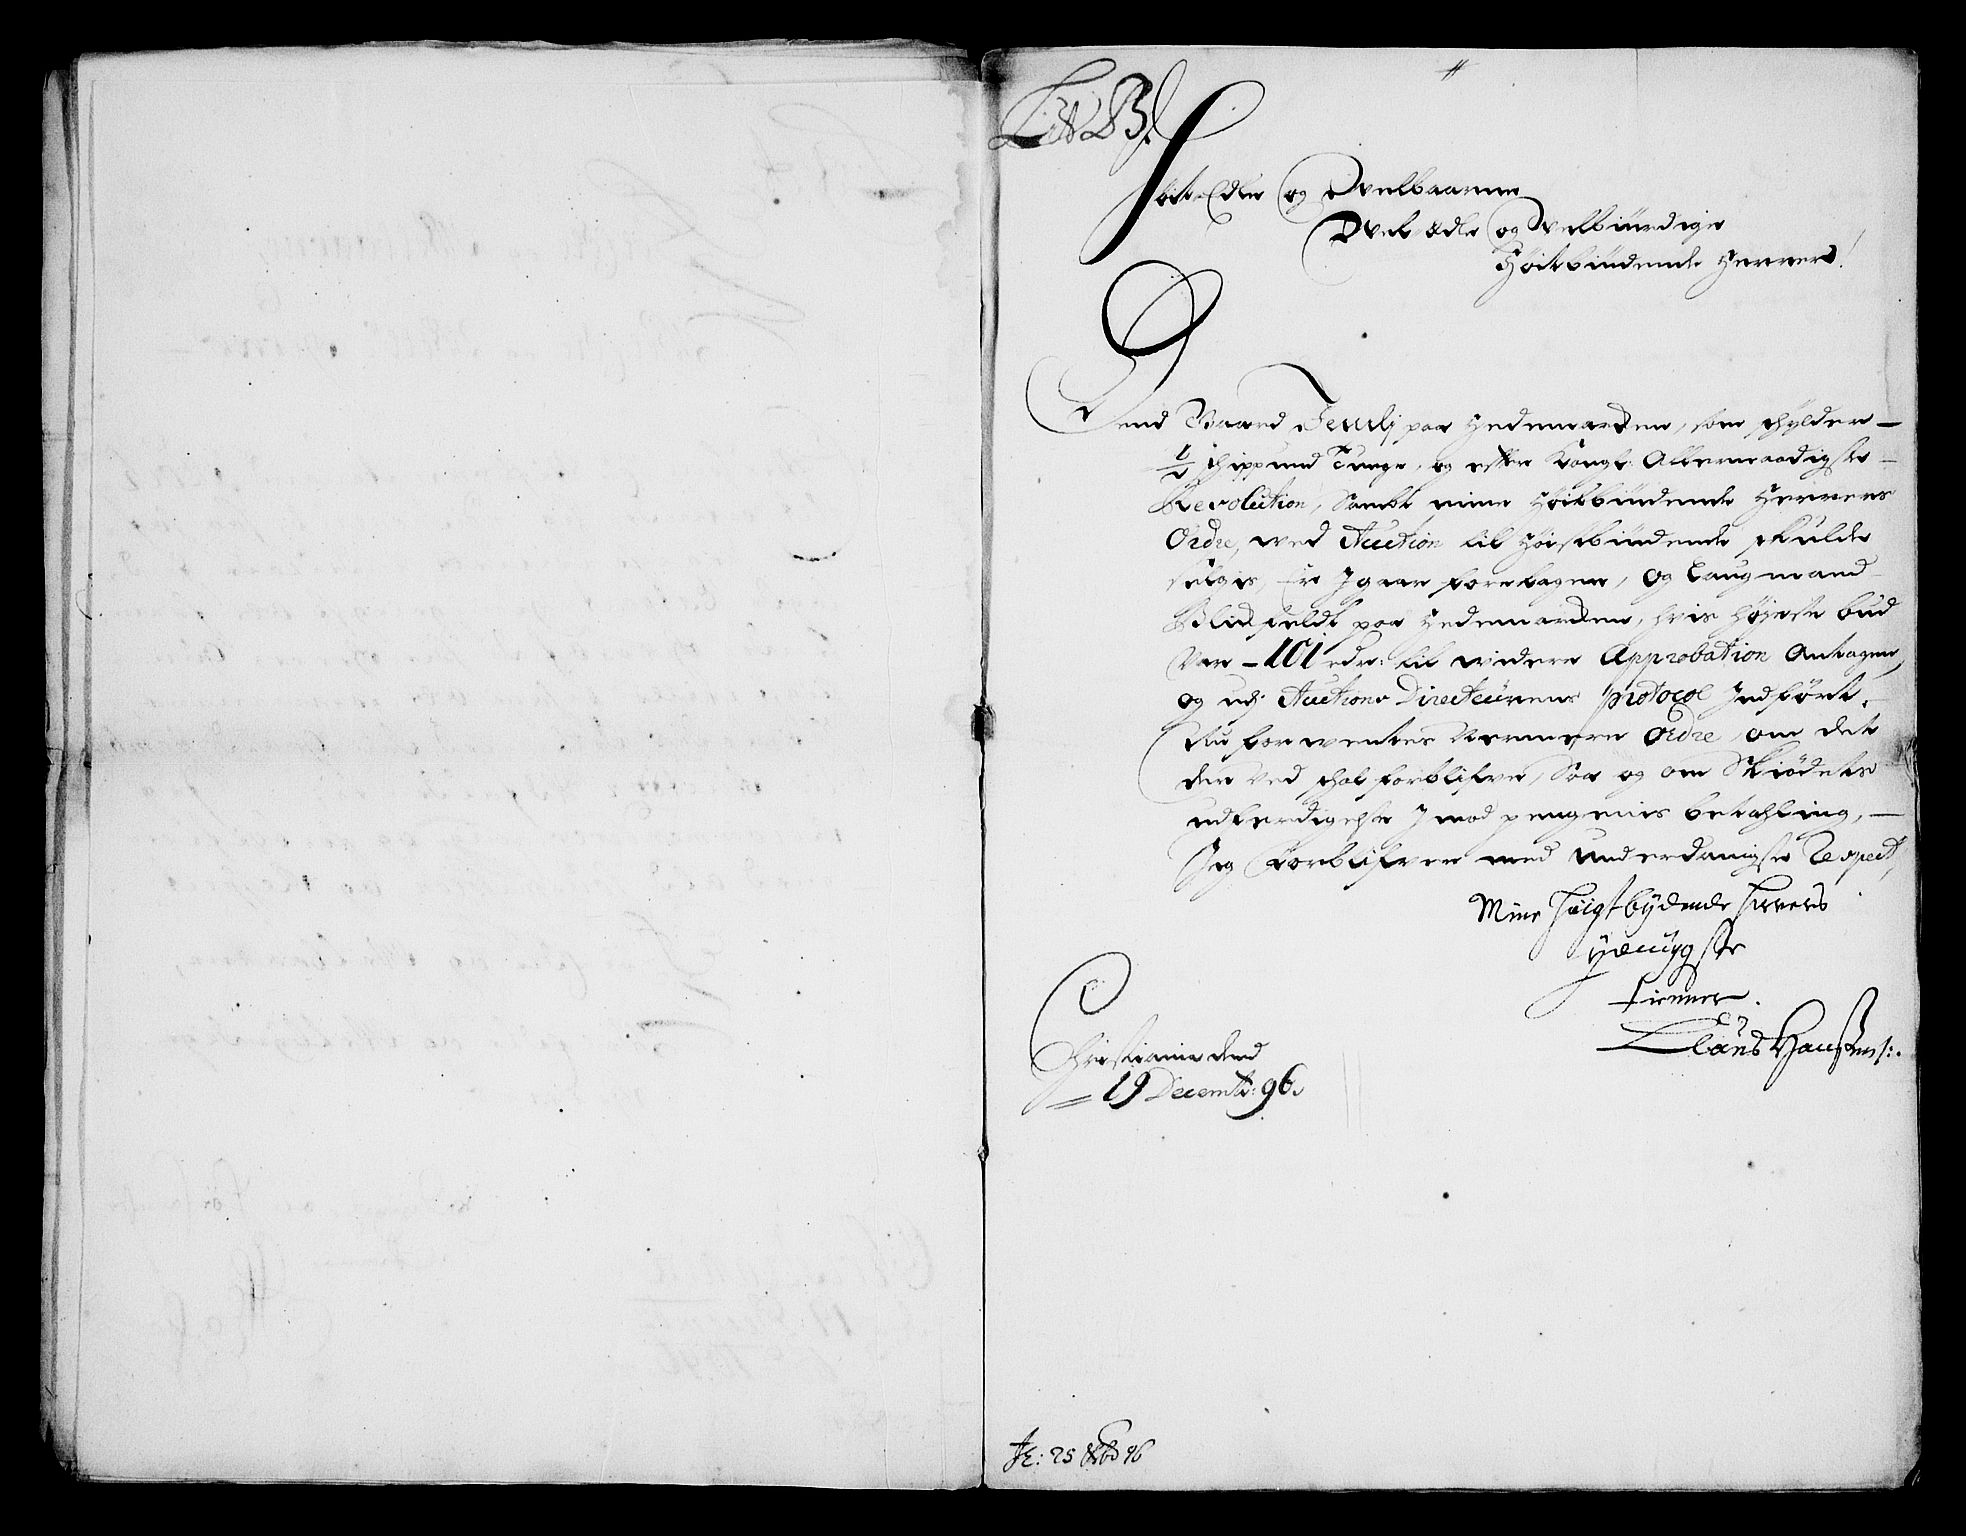 Lit B.
Høit Edle og Velbaarne
Vel Edle og Velbiurdige
Høitbiudende Herrer!
Dend Gaard Jemli paa Hedemarken, som skylder
½ skippund Tunge, og effter Kongl: Allernaadigste
Resolution, Sambt mine Høitbiudende Herrers
Ordre, ved Auction til Høistbiudende skulde
selges, Er Igaar foretagen, og Laugmand
Blixfeldt paa Hedemarken, hvis høyeste bud
Var 101 rdr: til videre Approbation Antagen,
og udj Auctions Directeurens Protocol Indført.
Nu forwentes Nermere Ordre, om det
der ved skal forblifve, Saa og om Skiødets
udferdigelse Imod pengenis betahling,
Jeg Forblifver med Underdanigste Respect,
Mine Høigstbydende Herrers
Ydmygste
tienner.
Claus Hanssen
Christiania dend
19 Decembr: 96.
Pr: 25 Xbr 96